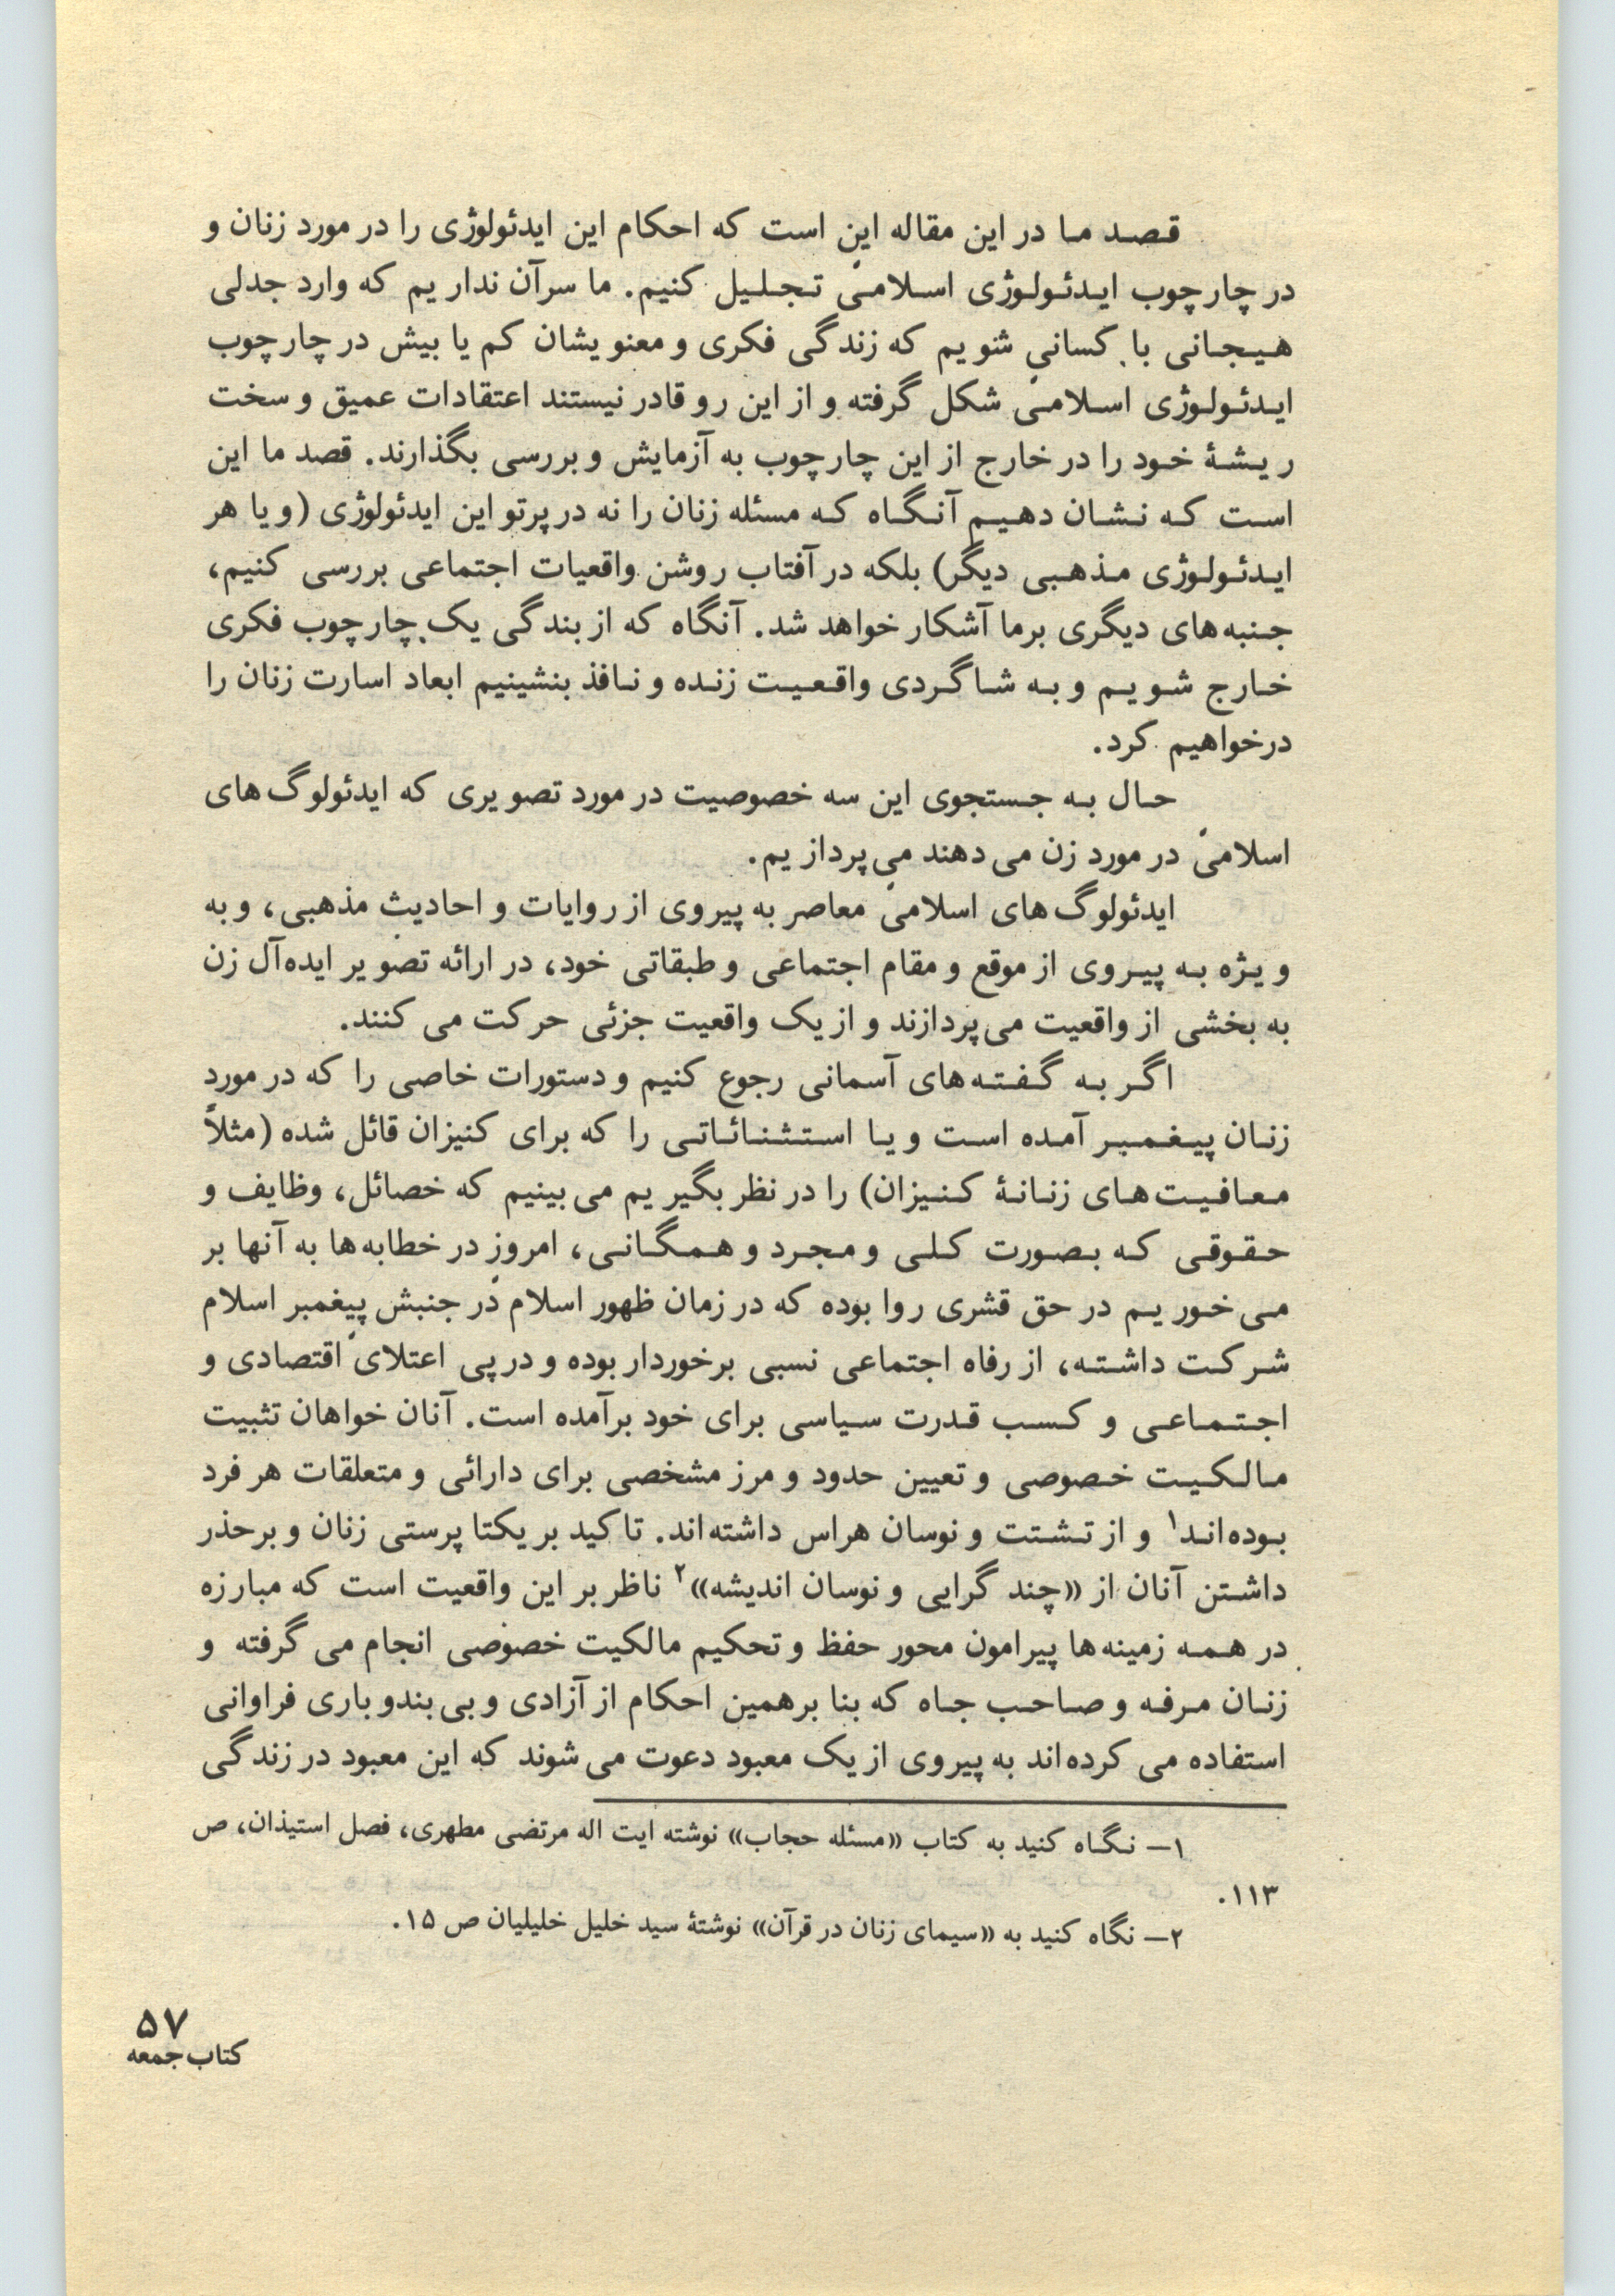 قصد ما در این مقاله این است که احکام این ایدئولوژی را در مورد زنان و
در چارچوب ایدئولوژی اسلامی تجلیل کنیم. ما سرآن نداریم که وارد جدلی
هیجانی با کسانی شویم که زندگی فکری و معنویشان کم یا بیش در چارچوب
ایدئولوژی اسلامی شکل گرفته و از این رو قادر نیستند اعتقادات عمیق و سخت
ریشهٔ خود را در خارج از این چارچوب به آزمایش و بررسی بگذارند. قصد ما این
است که نشان دهیم آنگاه که مسئله زنان را نه در پرتو این ایدئولوژی (و یا هر
ایدئولوژی مذهبی دیگر) بلکه در آفتاب روشن واقعیات اجتماعی بررسی کنیم،
جنبه‌های دیگری برما آشکار خواهد شد. آنگاه که از بندگی یک چارچوب فکری
خارج شویم و به شاگردی واقعیت زنده و نافذ بنشینیم ابعاد اسارت زنان را
درخواهیم کرد.
حال به جستجوی این سه خصوصیت در مورد تصویری که ایدئولوگ‌های
اسلامی در مورد زن می‌دهند می‌پردازیم.
ایدئولوگ‌های اسلامی معاصر به پیروی از روایات و احادیث مذهبی، و به
ویژه به پیروی از موقع و مقام اجتماعی و طبقاتی خود، در ارائه تصویر ایده‌آل زن
به بخشی از واقعیت می‌پردازند و از یک واقعیت جزئی حرکت می کنند.
اگر به گفته‌های آسمانی رجوع کنیم و دستورات خاصی را که در مورد
زنان پیغمبر آمده است و یا استثنائاتی را که برای کنیزان قائل شده (مثلاً
معافیت‌های زنانهٔ کنیزان) را در نظر بگیریم می‌بینیم که خصائل، وظایف و
حقوقی که بصورت کلی و مجرد و همگانی، امروز در خطابه‌ها به آنها بر
می‌خوریم در حق قشری روا بوده که در زمان ظهور اسلام در جنبش پیغمبر اسلام
شرکت داشته، از رفاه اجتماعی نسبی برخوردار بوده و در پی اعتلای اقتصادی و
اجتماعی و کسب قدرت سیاسی برای خود برآمده است. آنان خواهان تثبیت
مالکیت خصوصی و تعیین حدود و مرز مشخصی برای دارائی و متعلقات هر فرد
بوده‌اند۱ و از تشتت و نوسان هراس داشته‌اند. تاکید بر یکتا پرستی زنان و برحذر
داشتن آنان از «چند گرایی و نوسان اندیشه»۲ ناظر بر این واقعیت است که مبارزه
در همه زمینه‌ها پیرامون محور حفظ و تحکیم مالکیت خصوصی انجام می گرفته و
زنان مرفه و صاحب جاه که بنا برهمین احکام از آزادی و بی‌بندو باری فراوانی
استفاده می کرده‌اند به پیروی از یک معبود دعوت می‌شوند که این معبود در زندگی
۱— نگاه کنید به کتاب «مسئله حجاب» نوشته ایت اله مرتضی مطهری، فصل استیذان، ص
۱۱۳.
۲— نگاه کنید به «سیمای زنان در قرآن» نوشتهٔ سید خلیل خلیلیان ص ۱۵.
۵۷
کتاب جمعه